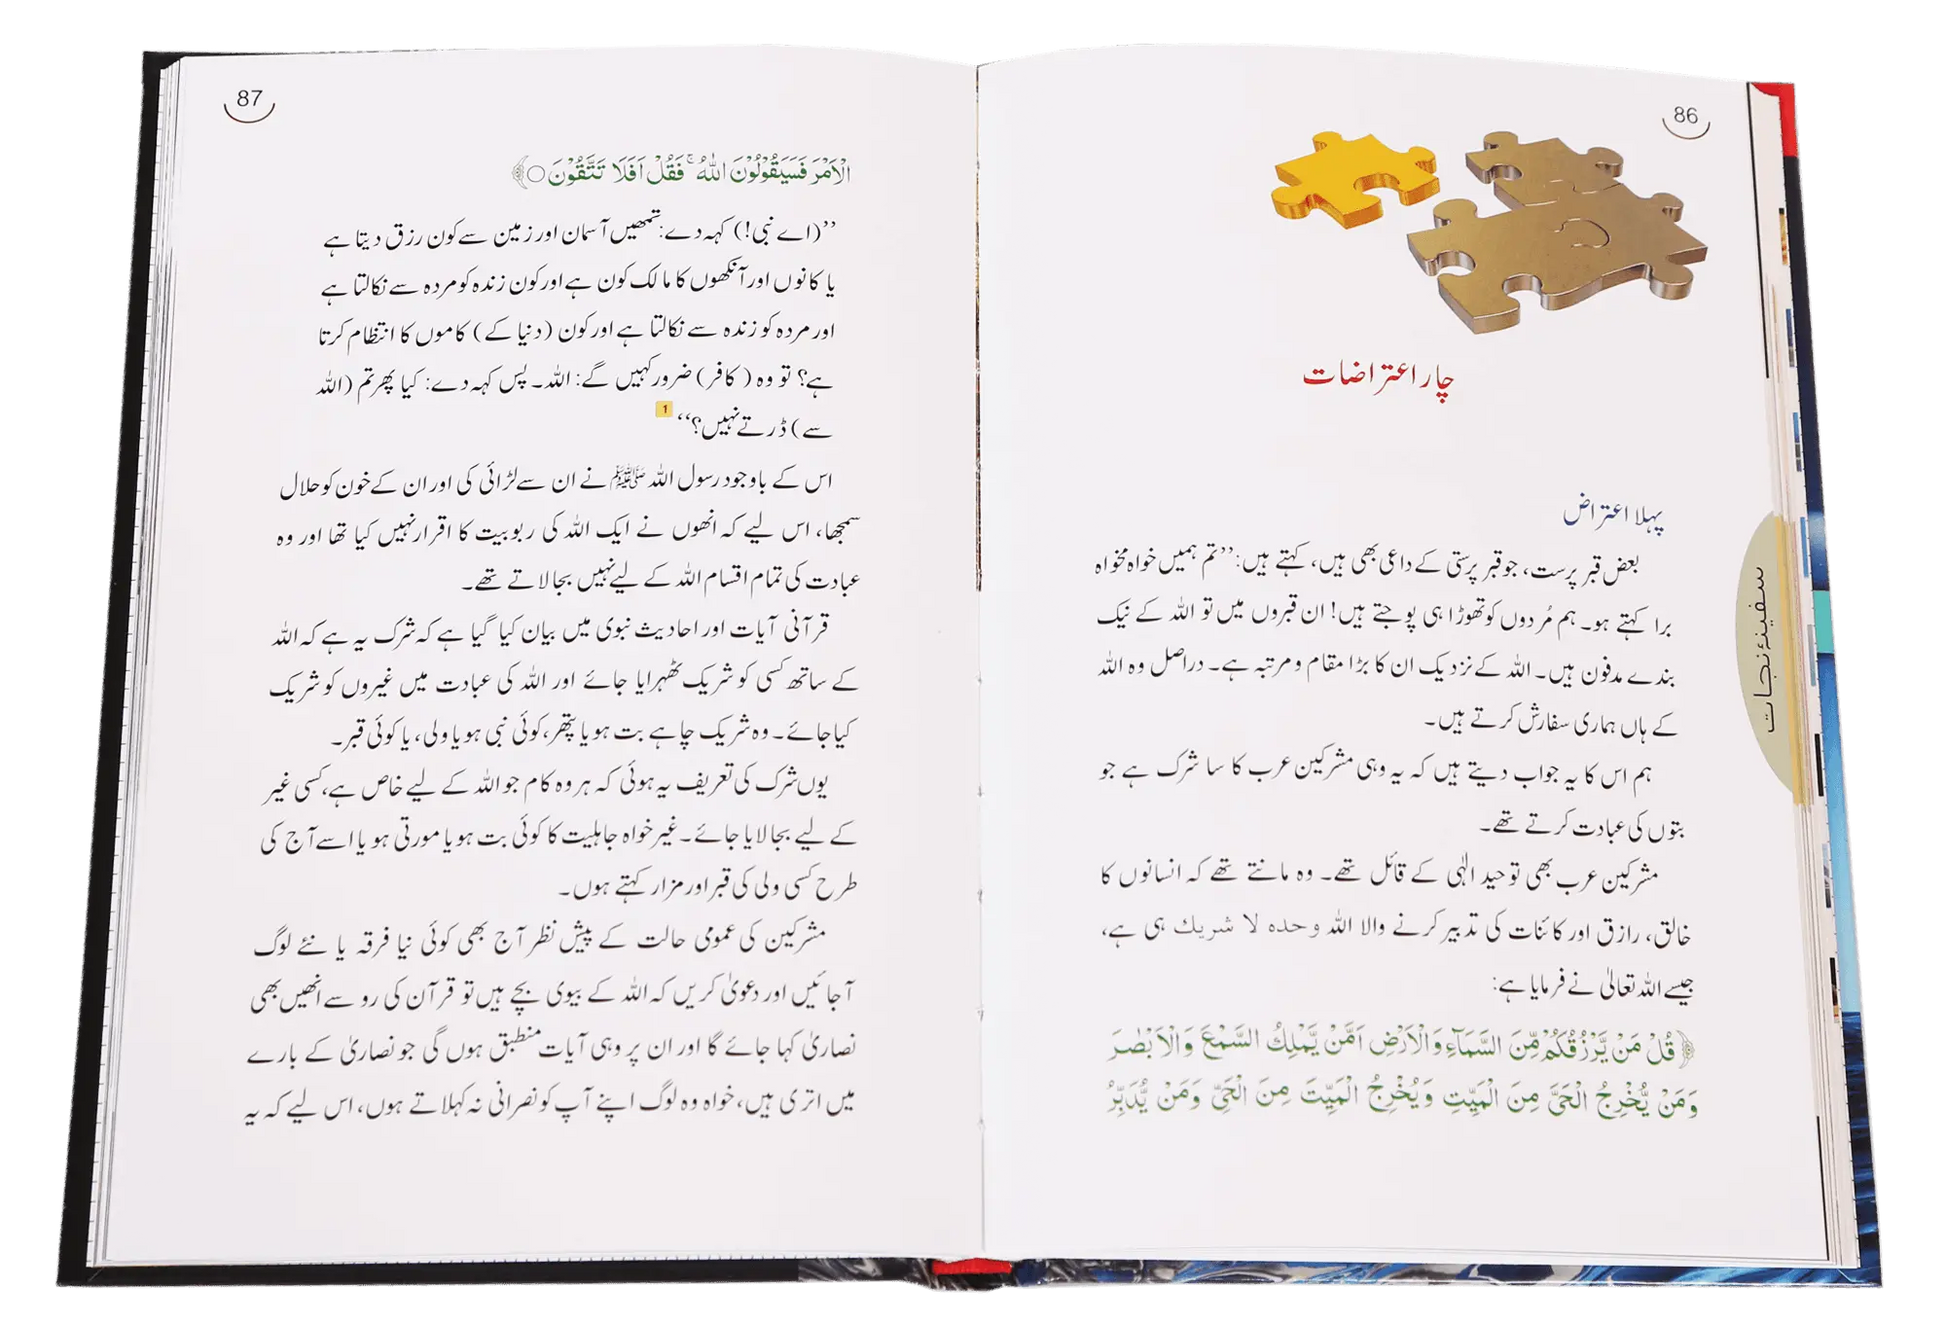 86
چار اعتراضات
پہلا اعتراض
بعض قبر پرست، جو قبر پرستی کے داعی بھی ہیں، کہتے ہیں: ’’تم ہمیں خواہ مخواہ
برا کہتے ہو۔ ہم مُردوں کو تھوڑا ہی پوجتے ہیں! ان قبروں میں تو اللہ کے نیک
بندے مدفون ہیں۔ اللہ کے نزدیک ان کا بڑا مقام و مرتبہ ہے۔ دراصل وہ اللہ
کے ہاں ہماری سفارش کرتے ہیں۔
ہم اس کا یہ جواب دیتے ہیں کہ یہ وہی مشرکین عرب کا سا شرک ہے جو
بتوں کی عبادت کرتے تھے۔
مشرکین عرب بھی توحید الٰہی کے قائل تھے۔ وہ مانتے تھے کہ انسانوں کا
خالق، رازق اور کائنات کی تدبیر کرنے والا اللہ وحده لا شريك ہی ہے،
جیسے اللہ تعالیٰ نے فرمایا ہے:
﴿قُلْ مَنْ يَّرْزُقُكُمْ مِّنَ السَّمَآءِ وَالْاَرْضِ اَمَّنْ يَّمْلِكُ السَّمْعَ وَالْاَبْصٰرَ
وَمَنْ يُّخْرِجُ الْحَيَّ مِنَ الْمَيِّتِ وَيُخْرِجُ الْمَيِّتَ مِنَ الْحَيِّ وَمَنْ يُّدَبِّرُ
سفینۂ نجات
87
الْاَمْرَ فَسَيَقُوْلُوْنَ اللّٰهُ ۚ فَقُلْ اَفَلَا تَتَّقُوْنَ ○﴾
’’(اے نبی!) کہہ دے: تمھیں آسمان اور زمین سے کون رزق دیتا ہے
یا کانوں اور آنکھوں کا مالک کون ہے اور کون زندہ کو مردہ سے نکالتا ہے
اور مردہ کو زندہ سے نکالتا ہے اور کون (دنیا کے) کاموں کا انتظام کرتا
ہے؟ تو وہ (کافر) ضرور کہیں گے: اللہ۔ پس کہہ دے: کیا پھر تم (اللہ
سے) ڈرتے نہیں؟‘‘ 1
اس کے باوجود رسول اللہ ﷺ نے ان سے لڑائی کی اور ان کے خون کو حلال
سمجھا، اس لیے کہ انھوں نے ایک اللہ کی ربوبیت کا اقرار نہیں کیا تھا اور وہ
عبادت کی تمام اقسام اللہ کے لیے نہیں بجا لاتے تھے۔
قرآنی آیات اور احادیث نبوی میں بیان کیا گیا ہے کہ شرک یہ ہے کہ اللہ
کے ساتھ کسی کو شریک ٹھہرایا جائے اور اللہ کی عبادت میں غیروں کو شریک
کیا جائے۔ وہ شریک چاہے بت ہو یا پتھر، کوئی نبی ہو یا ولی، یا کوئی قبر۔
یوں شرک کی تعریف یہ ہوئی کہ ہر وہ کام جو اللہ کے لیے خاص ہے، کسی غیر
کے لیے بجا لایا جائے۔ غیر خواہ جاہلیت کا کوئی بت ہو یا مورتی ہو یا اسے آج کی
طرح کسی ولی کی قبر اور مزار کہتے ہوں۔
مشرکین کی عمومی حالت کے پیش نظر آج بھی کوئی نیا فرقہ یا نئے لوگ
آجائیں اور دعویٰ کریں کہ اللہ کے بیوی بچے ہیں تو قرآن کی رو سے انھیں بھی
نصاریٰ کہا جائے گا اور ان پر وہی آیات منطبق ہوں گی جو نصاریٰ کے بارے
میں اتری ہیں، خواہ وہ لوگ اپنے آپ کو نصرانی نہ کہلاتے ہوں، اس لیے کہ یہ